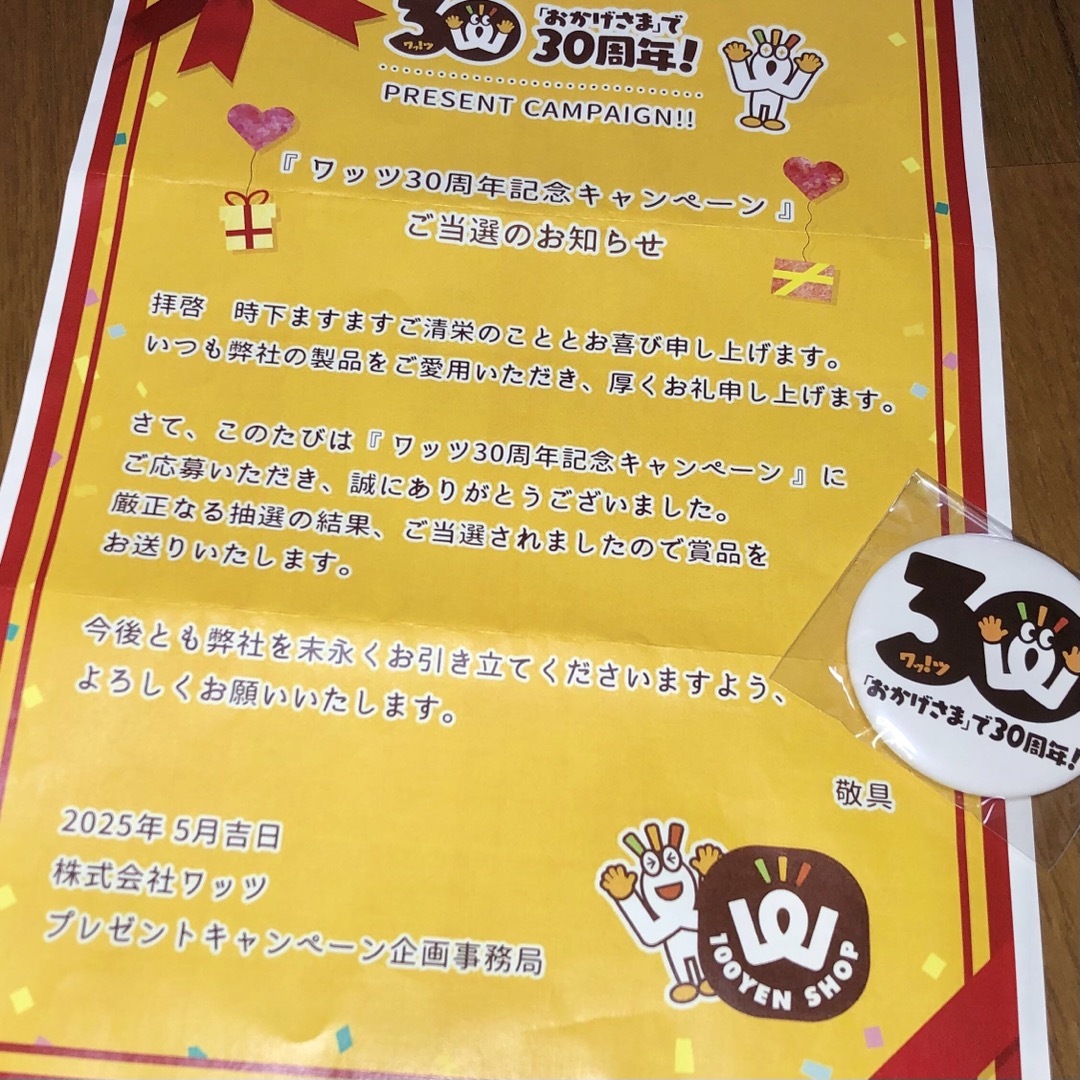 30
ワッ!ツ
「おかげさま」で
30周年!
PRESENT CAMPAIGN!!
『 ワッツ30周年記念キャンペーン 』
ご当選のお知らせ
拝啓　時下ますますご清栄のこととお喜び申し上げます。
いつも弊社の製品をご愛用いただき、厚くお礼申し上げます。
さて、このたびは『 ワッツ30周年記念キャンペーン 』に
ご応募いただき、誠にありがとうございました。
厳正なる抽選の結果、ご当選されましたので賞品を
お送りいたします。
今後とも弊社を末永くお引き立てくださいますよう、
よろしくお願いいたします。
敬具
2025年 5月吉日
株式会社ワッツ
プレゼントキャンペーン企画事務局
100YEN SHOP
30
ワッ!ツ
「おかげさま」で30周年!